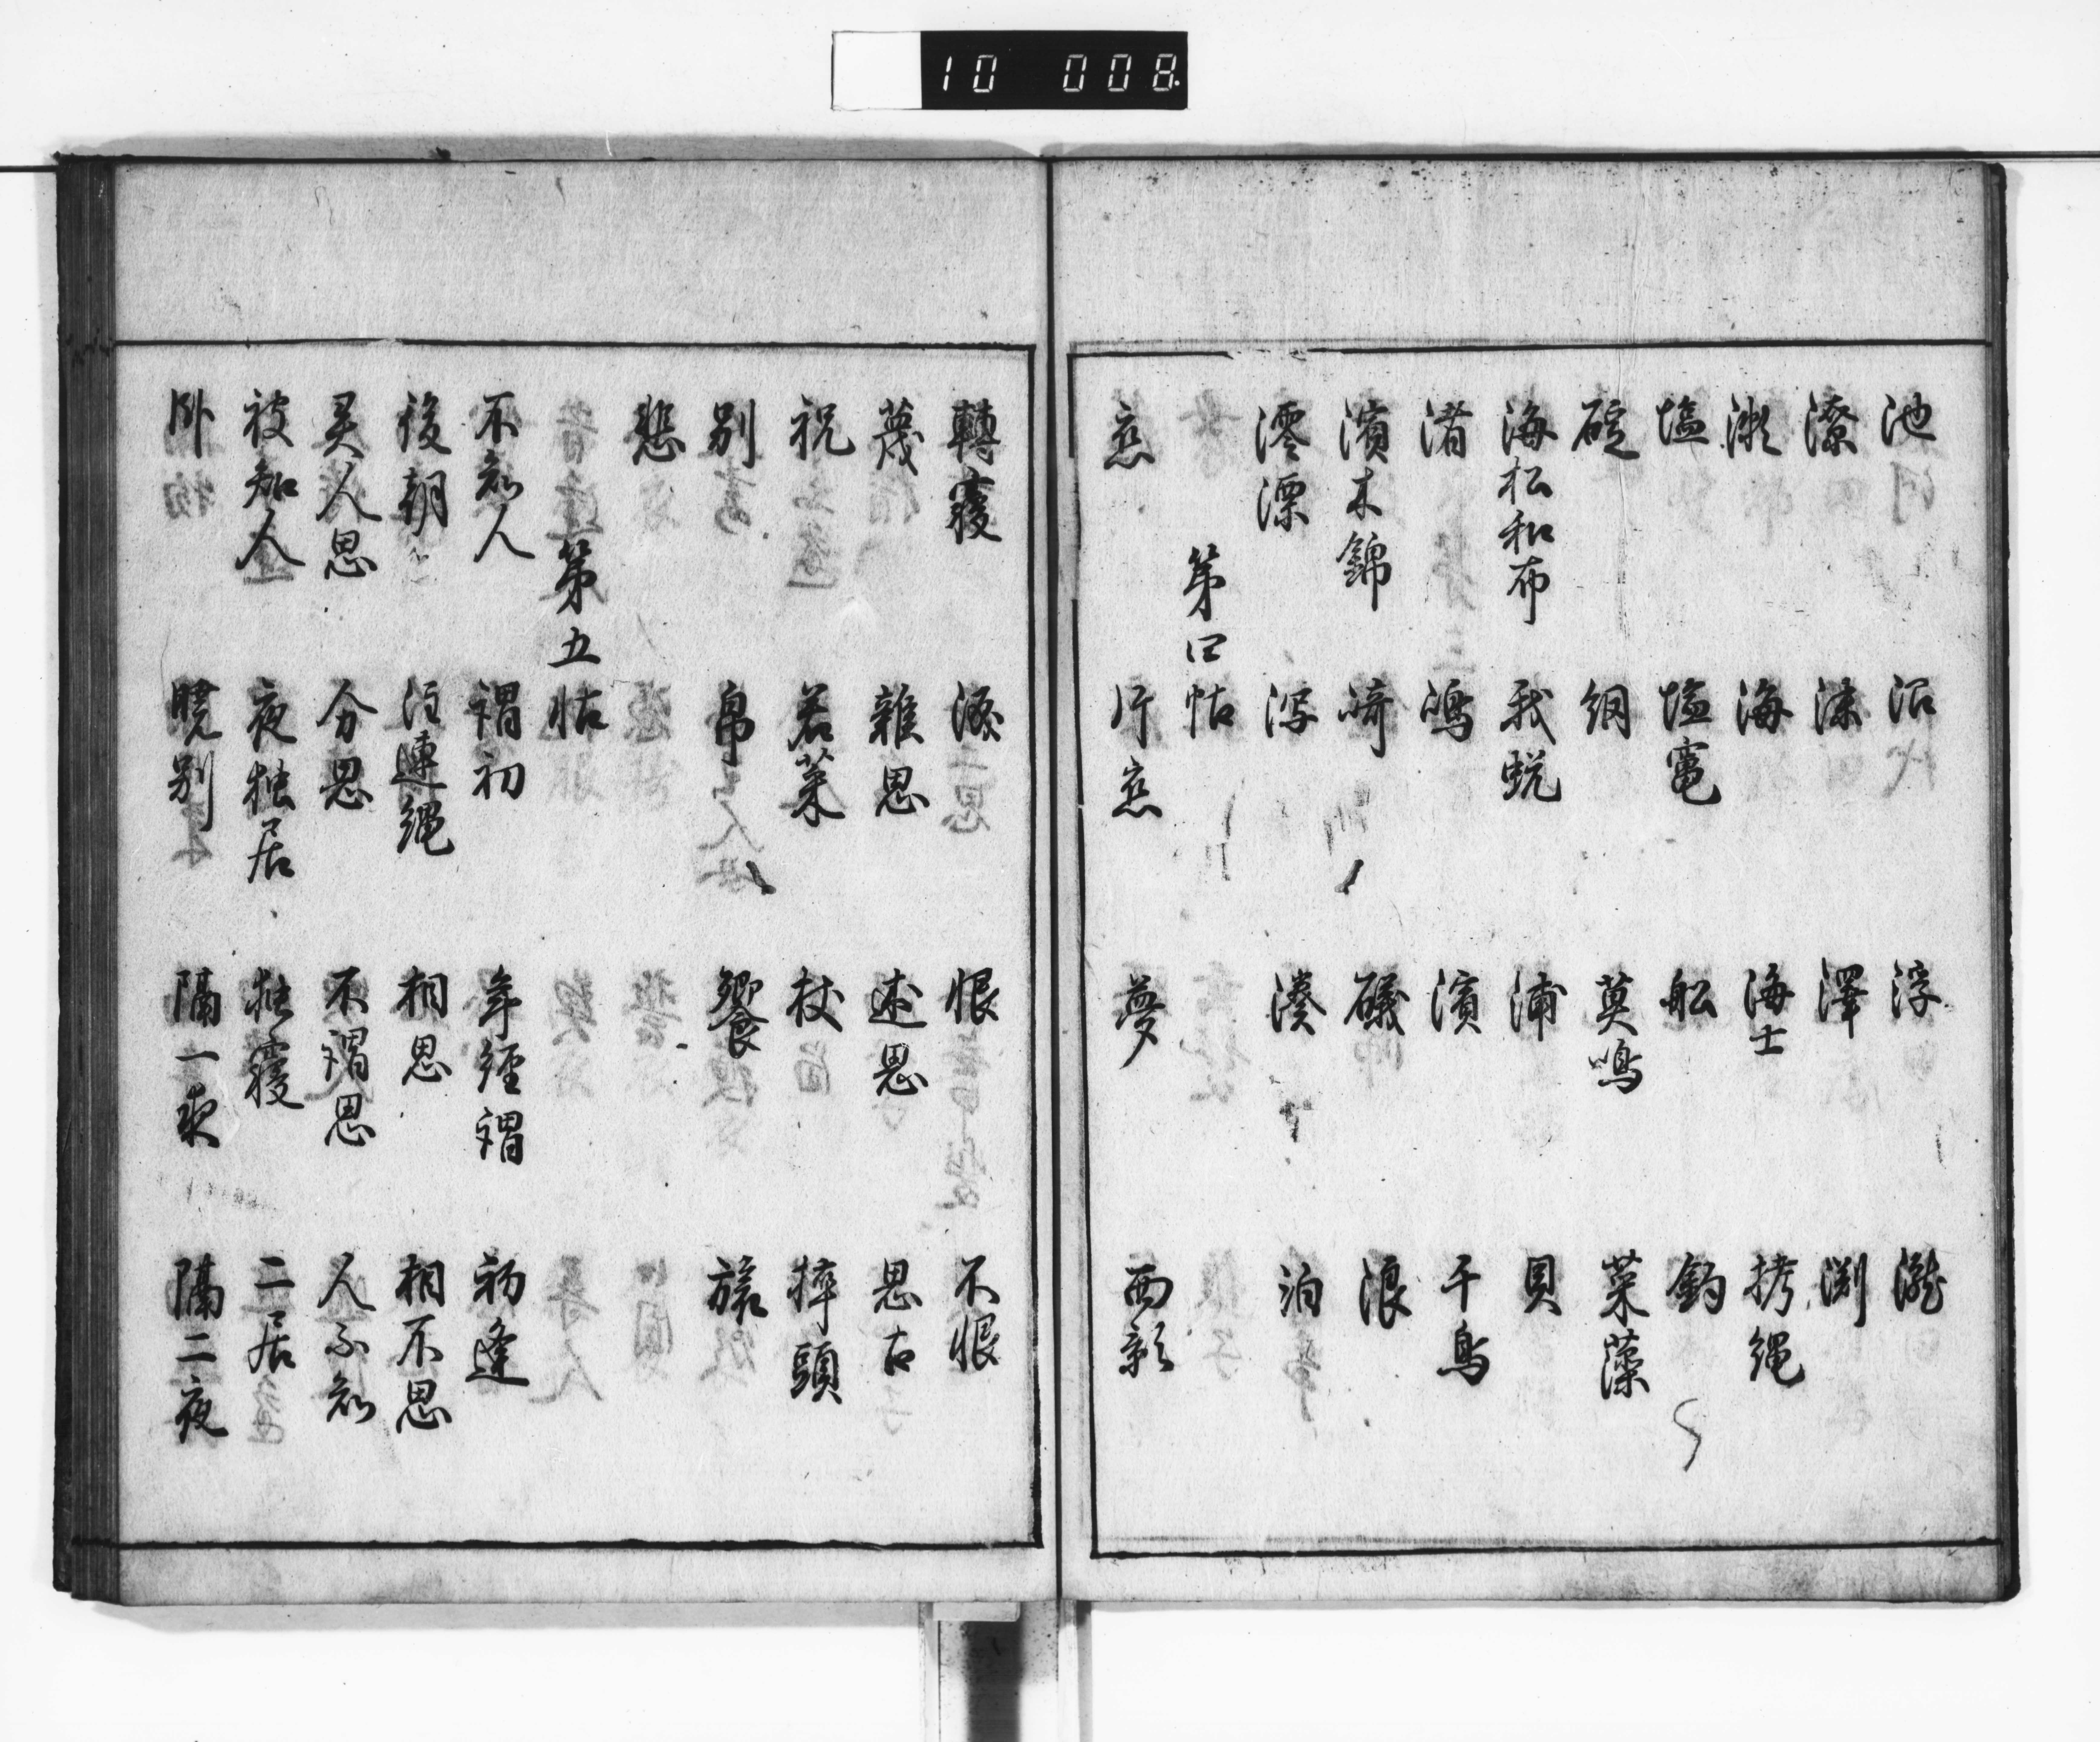 10 008
池 沼 浮 瀧
潦 沫 澤 渕
瀬 海 海士 拷縄
塩 塩竃 舩 釣
碇 網 莫鳴菜藻
海松和布 我蛻 浦 貝
渚 嶋 濱 千鳥
濱木錦 崎 礒 浪
澪漂 潟 湊 泊
第四帖
恋 片恋 夢 面影
轉寝 涙 恨 不恨
雜思 述思 思古
祝 若菜 杖 挿頭
別 帛 饗 旅
悲
第五帖
不知人 謂初 年經謂 初逢
後朝 注連縄 相思 相不思
異人思 分思 不謂思 人不知
被知人 夜独居 独寝 二居
臥 暁別 隔一夜 隔二夜